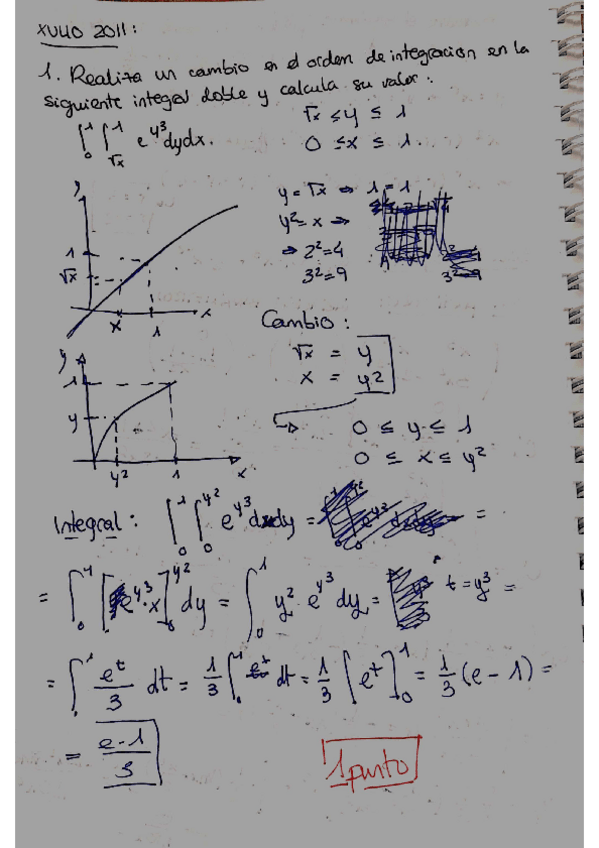 XULLO 2011:
1. Realiza un cambio en el orden de integración en la
siguiente integral doble y calcula su valor:
∫₀¹ ∫_√x¹ e^y³ dydx.
√x ≤ y ≤ 1
0 ≤ x ≤ 1.
y
1
√x
x
1
x
y = √x ⇒ 1 = 1
y² = x ⇒
⇒ 2² = 4
3² = 9
3² = 9
Cambio:
√x = y
x = y²
y
1
y
y²
1
x
0 ≤ y ≤ 1
0 ≤ x ≤ y²
Integral: ∫₀¹ ∫₀^y² e^y³ dxdy = =
= ∫₀¹ [e^y³ · x]₀^y² dy = ∫₀¹ y² · e^y³ dy = t = y³ =
= ∫₀¹ e^t/3 dt = 1/3 ∫₀¹ e^t dt = 1/3 [e^t]₀¹ = 1/3 (e - 1) =
= e-1/3
1 punto